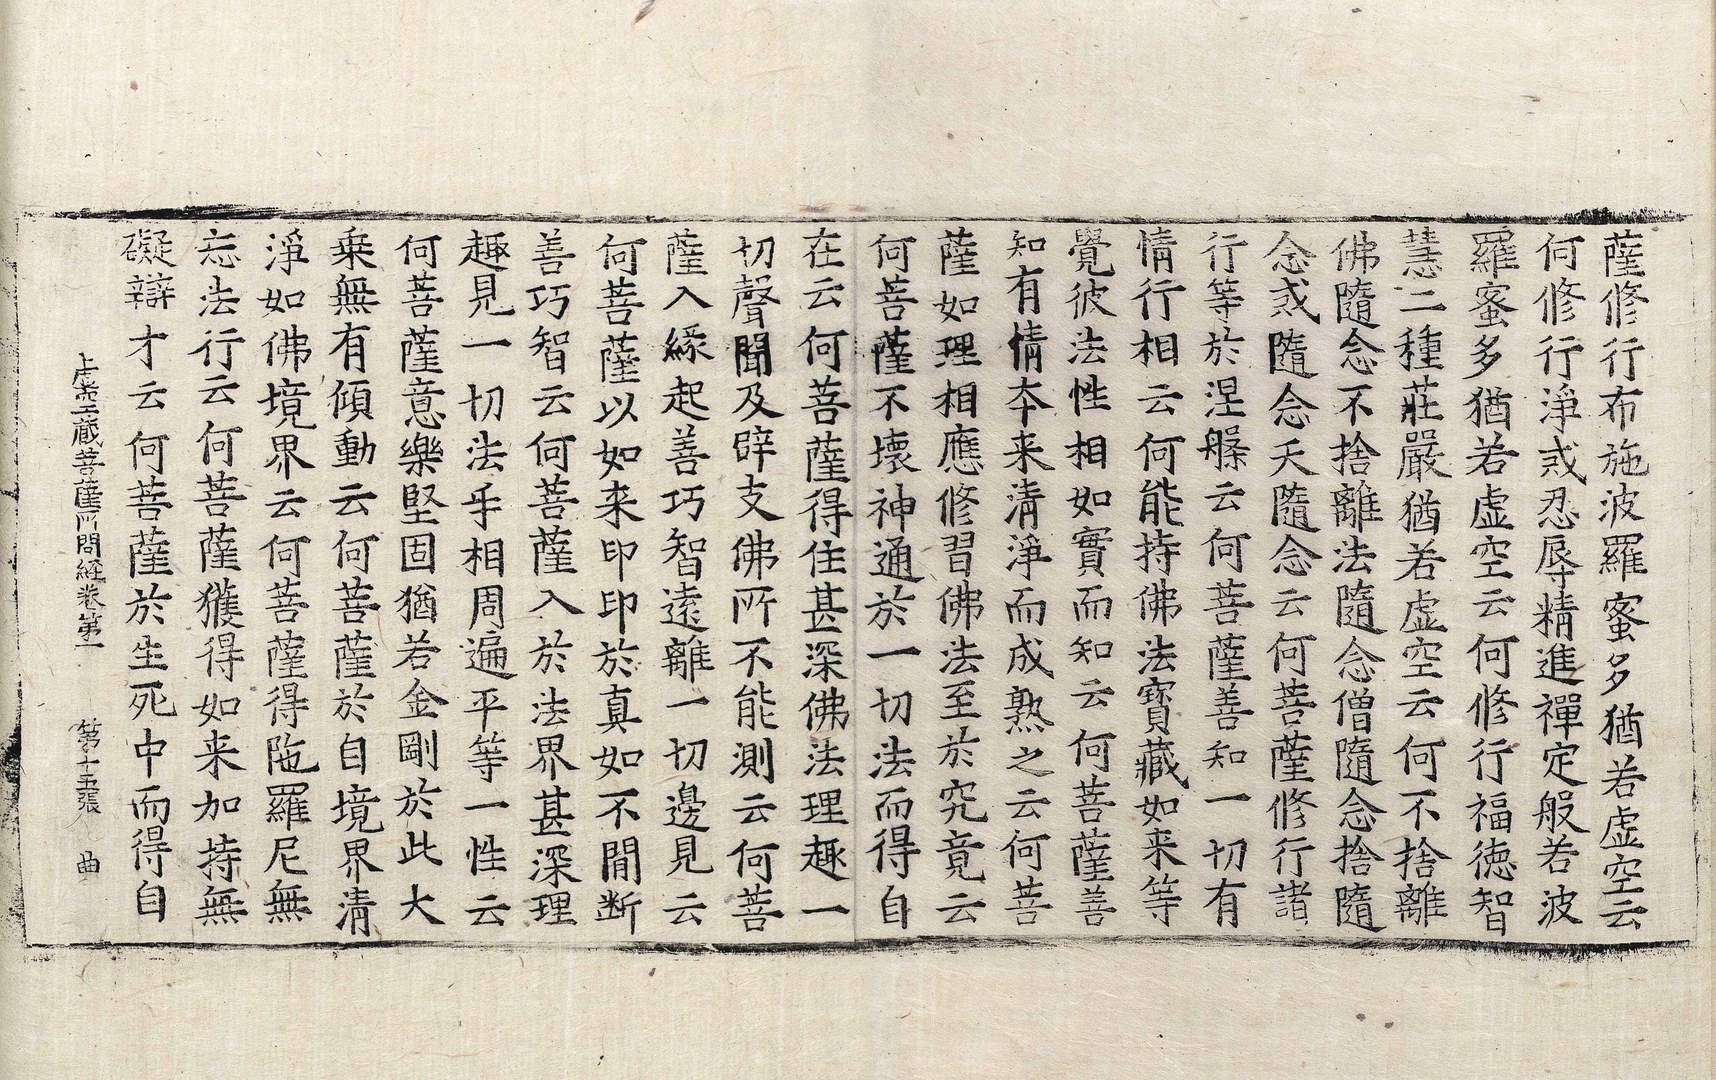 薩修行布施波羅蜜多猶若虛空云
何修行淨戒忍辱精進禪定般若波
羅蜜多猶若虛空云何修行福德智
慧二種莊嚴猶若虛空云何不捨離
佛隨念不捨離法隨念僧隨念捨隨
念戒隨念天隨念云何菩薩修行諸
行等於涅槃云何菩薩善知一切有
情行相云何能持佛法寶藏如来等
覺彼法性相如實而知云何菩薩善
知有情本来清淨而成熟之云何菩
薩如理相應修習佛法至於究竟云
何菩薩不壞神通於一切法而得自
在云何菩薩得住甚深佛法理趣一
切聲聞及辟支佛所不能測云何菩
薩入緣起善巧智遠離一切邊見云
何菩薩以如来印印於真如不間斷
善巧智云何菩薩入於法界甚深理
趣見一切法乎相周遍平等一性云
何菩薩意樂堅固猶若金剛於此大
乗無有傾動云何菩薩於自境界清
淨如佛境界云何菩薩得陁羅尼無
忘法行云何菩薩獲得如来加持無
礙辯才云何菩薩於生死中而得自
虚空藏菩薩所問経卷第一 第十五張 曲